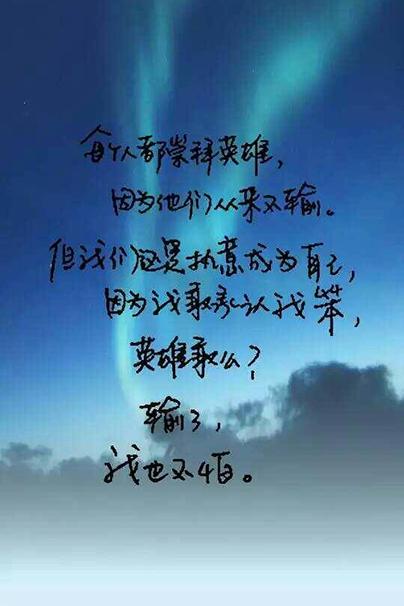 每个人都崇拜英雄，
因为他们从来不输。
但我们还是执意成为自己，
因为我敢承认我笨，
英雄敢么？
输了，
我也不怕。